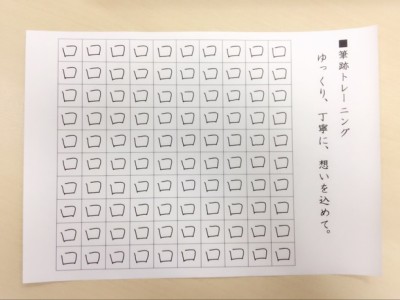 ■筆跡トレーニング
ゆっくり、丁寧に、想いを込めて。
口口口口口口口口口口
口口口口口口口口口口
口口口口口口口口口口
口口口口口口口口口口
口口口口口口口口口口
口口口口口口口口口口
口口口口口口口口口口
口口口口口口口口口口
口口口口口口口口口口
口口口口口口口口口口